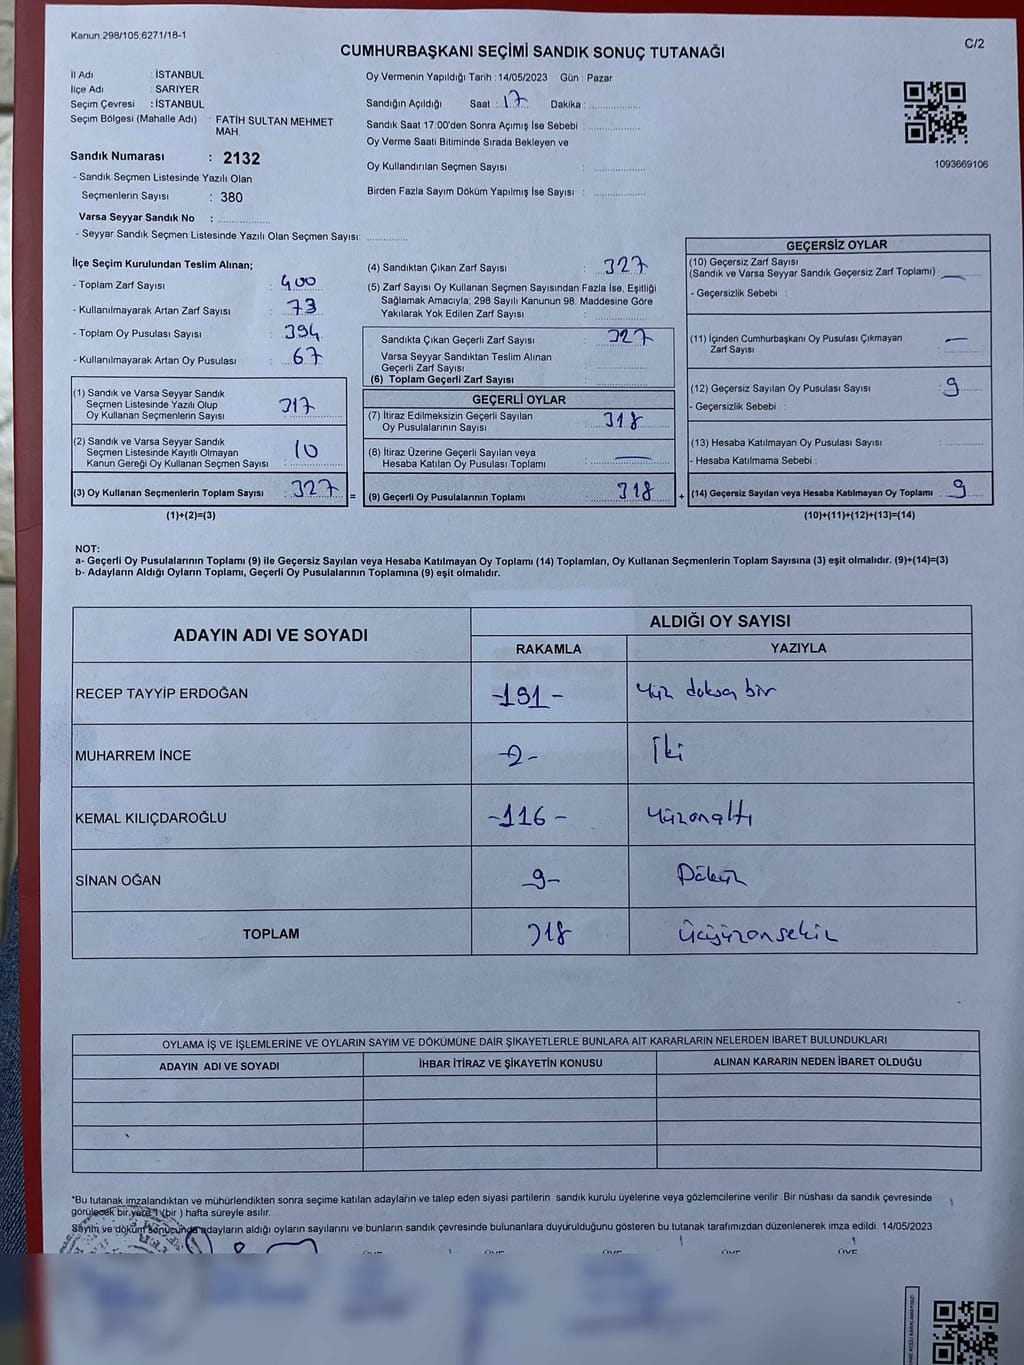 Kanun 298/105,6271/18-1
C/2
CUMHURBAŞKANI SEÇİMİ SANDIK SONUÇ TUTANAĞI
İl Adı : İSTANBUL
İlçe Adı : SARIYER
Seçim Çevresi : İSTANBUL
Seçim Bölgesi (Mahalle Adı) : FATİH SULTAN MEHMET
MAH.
Sandık Numarası : 2132
- Sandık Seçmen Listesinde Yazılı Olan
Seçmenlerin Sayısı : 380
Varsa Seyyar Sandık No :
- Seyyar Sandık Seçmen Listesinde Yazılı Olan Seçmen Sayısı:
Oy Vermenin Yapıldığı Tarih : 14/05/2023 Gün : Pazar
Sandığın Açıldığı Saat : 17 Dakika :
Sandık Saat 17:00'den Sonra Açımış İse Sebebi :
Oy Verme Saati Bitiminde Sırada Bekleyen ve
Oy Kullandırılan Seçmen Sayısı :
Birden Fazla Sayım Döküm Yapılmış İse Sayısı :
1093669106
İlçe Seçim Kurulundan Teslim Alınan;
- Toplam Zarf Sayısı : 400
- Kullanılmayarak Artan Zarf Sayısı : 73
- Toplam Oy Pusulası Sayısı : 394
- Kullanılmayarak Artan Oy Pusulası : 67
(1) Sandık ve Varsa Seyyar Sandık
Seçmen Listesinde Yazılı Olup
Oy Kullanan Seçmenlerin Sayısı : 317
(2) Sandık ve Varsa Seyyar Sandık
Seçmen Listesinde Kayıtlı Olmayan
Kanun Gereği Oy Kullanan Seçmen Sayısı : 10
(3) Oy Kullanan Seçmenlerin Toplam Sayısı : 327
(1)+(2)=(3)
(4) Sandıktan Çıkan Zarf Sayısı : 327
(5) Zarf Sayısı Oy Kullanan Seçmen Sayısından Fazla İse, Eşitliği
Sağlamak Amacıyla; 298 Sayılı Kanunun 98. Maddesine Göre
Yakılarak Yok Edilen Zarf Sayısı :
Sandıkta Çıkan Geçerli Zarf Sayısı : 327
Varsa Seyyar Sandıktan Teslim Alınan
Geçerli Zarf Sayısı :
(6) Toplam Geçerli Zarf Sayısı :
GEÇERLİ OYLAR
(7) İtiraz Edilmeksizin Geçerli Sayılan
Oy Pusulalarının Sayısı : 318
(8) İtiraz Üzerine Geçerli Sayılan veya
Hesaba Katılan Oy Pusulası Toplamı : —
= (9) Geçerli Oy Pusulalarının Toplamı : 318
GEÇERSİZ OYLAR
(10) Geçersiz Zarf Sayısı
(Sandık ve Varsa Seyyar Sandık Geçersiz Zarf Toplamı) : —
- Geçersizlik Sebebi :
(11) İçinden Cumhurbaşkanı Oy Pusulası Çıkmayan
Zarf Sayısı : —
(12) Geçersiz Sayılan Oy Pusulası Sayısı : 9
- Geçersizlik Sebebi :
(13) Hesaba Katılmayan Oy Pusulası Sayısı :
- Hesaba Katılmama Sebebi :
+ (14) Geçersiz Sayılan veya Hesaba Katılmayan Oy Toplamı : 9
(10)+(11)+(12)+(13)=(14)
NOT:
a- Geçerli Oy Pusulalarının Toplamı (9) ile Geçersiz Sayılan veya Hesaba Katılmayan Oy Toplamı (14) Toplamları, Oy Kullanan Seçmenlerin Toplam Sayısına (3) eşit olmalıdır. (9)+(14)=(3)
b- Adayların Aldığı Oyların Toplamı, Geçerli Oy Pusulalarının Toplamına (9) eşit olmalıdır.
ADAYIN ADI VE SOYADI
ALDIĞI OY SAYISI
RAKAMLA YAZIYLA
RECEP TAYYİP ERDOĞAN -191- Yüz doksan bir
MUHARREM İNCE -2- İki
KEMAL KILIÇDAROĞLU -116- Yüzonaltı
SİNAN OĞAN -9- Dokuz
TOPLAM 318 Üçyüzonsekiz
OYLAMA İŞ VE İŞLEMLERİNE VE OYLARIN SAYIM VE DÖKÜMÜNE DAİR ŞİKAYETLERLE BUNLARA AİT KARARLARIN NELERDEN İBARET BULUNDUKLARI
ADAYIN ADI VE SOYADI İHBAR İTİRAZ VE ŞİKAYETİN KONUSU ALINAN KARARIN NEDEN İBARET OLDUĞU
*Bu tutanak imzalandıktan ve mühürlendikten sonra seçime katılan adayların ve talep eden siyasi partilerin sandık kurulu üyelerine veya gözlemcilerine verilir. Bir nüshası da sandık çevresinde
görülecek bir yere 1 (bir ) hafta süreyle asılır.
Sayım ve döküm sonucunda adayların aldığı oyların sayılarını ve bunların sandık çevresinde bulunanlara duyurulduğunu gösteren bu tutanak tarafımızdan düzenlenerek imza edildi. 14/05/2023
ÜYE ÜYE ÜYE ÜYE ÜYE